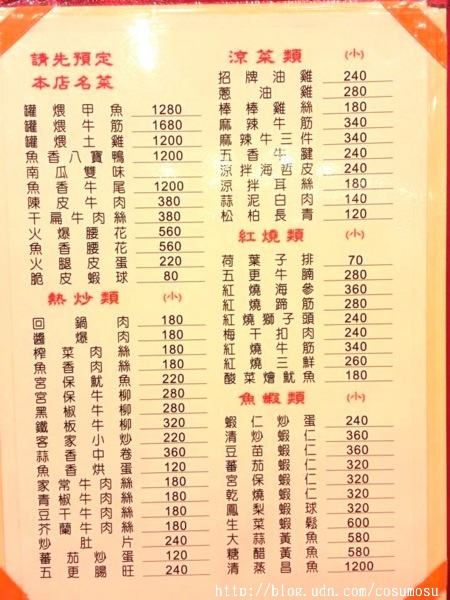 請先預定
本店名菜
罐煨甲魚 1280
罐煨牛筋 1680
罐煨土雞 1200
魚香八寶鴨 1200
南瓜雙味
魚香牛尾 1200
陳皮牛肉 380
干扁牛肉絲 380
火爆腰花 560
魚香腰花 560
火腿皮蛋 220
脆皮蝦球 80
熱炒類 (小)
回鍋肉 180
醬爆肉 180
榨菜肉絲 180
魚香肉絲 180
宮保魷魚 220
宮保牛柳 280
黑椒牛柳 280
鐵板牛柳 320
客家小炒 220
蒜香中卷 360
魚香烘蛋 120
家常牛肉絲 180
青椒牛肉絲 180
豆干牛肉絲 180
芥蘭牛肉絲 180
炒肚片 240
蕃茄炒蛋 120
五更腸旺 240
涼菜類 (小)
招牌油雞 240
蔥油雞 280
棒棒雞絲 180
麻辣牛筋 340
麻辣牛三件 340
五香牛腱 240
涼拌海哲皮 240
涼拌耳絲 180
蒜泥白肉 140
松柏長青 120
紅燒類 (小)
荷葉子排 70
五更牛腩 280
紅燒海參 360
紅燒蹄筋 280
紅燒獅子頭 240
梅干扣肉 240
紅燒牛筋 340
紅燒三鮮 260
酸菜燴魷魚 180
魚蝦類 (小)
蝦仁炒蛋 240
清炒蝦仁 360
豆苗蝦仁 360
蕃茄蝦仁 320
宮保蝦仁 320
乾燒蝦仁 320
鳳梨蝦球 320
生菜蝦鬆 600
大蒜黃魚 580
糖醋黃魚 580
清蒸昌魚 1200
http://blog.udn.com/cosumosu